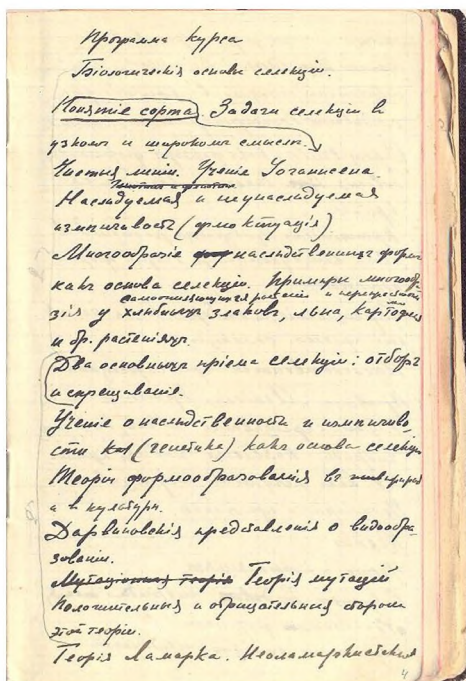 Программа курса
Біологическія основы селекціи.
Понятіе сорта. Задачи селекціи въ
узкомъ и широкомъ смыслѣ.
Чистыя линіи. Ученіе Іоганнсена.
Наслѣдуемая и ненаслѣдуемая
измѣнчивость (флюктуація)
Многообразіе наслѣдственныхъ формъ
какъ основа селекціи. Примѣры многообра-
самоопыляющихся растеній и перекрестно
зія у хлѣбныхъ злаковъ, льна, картофеля
и др. растеніяхъ.
Два основныхъ пріема селекціи: отборъ
и скрещиваніе.
Ученіе о наслѣдственности и измѣнчиво-
сти (генетика) какъ основа селекціи
Теоріи формообразованія въ природѣ
и въ культурѣ.
Дарвиновскія представленія о видообра-
зованіи.
Мутаціонная теорія Теорія мутацій
Положительныя и отрицательныя стороны
этой теоріи.
Теорія Ламарка. Неоламаркистскія
4